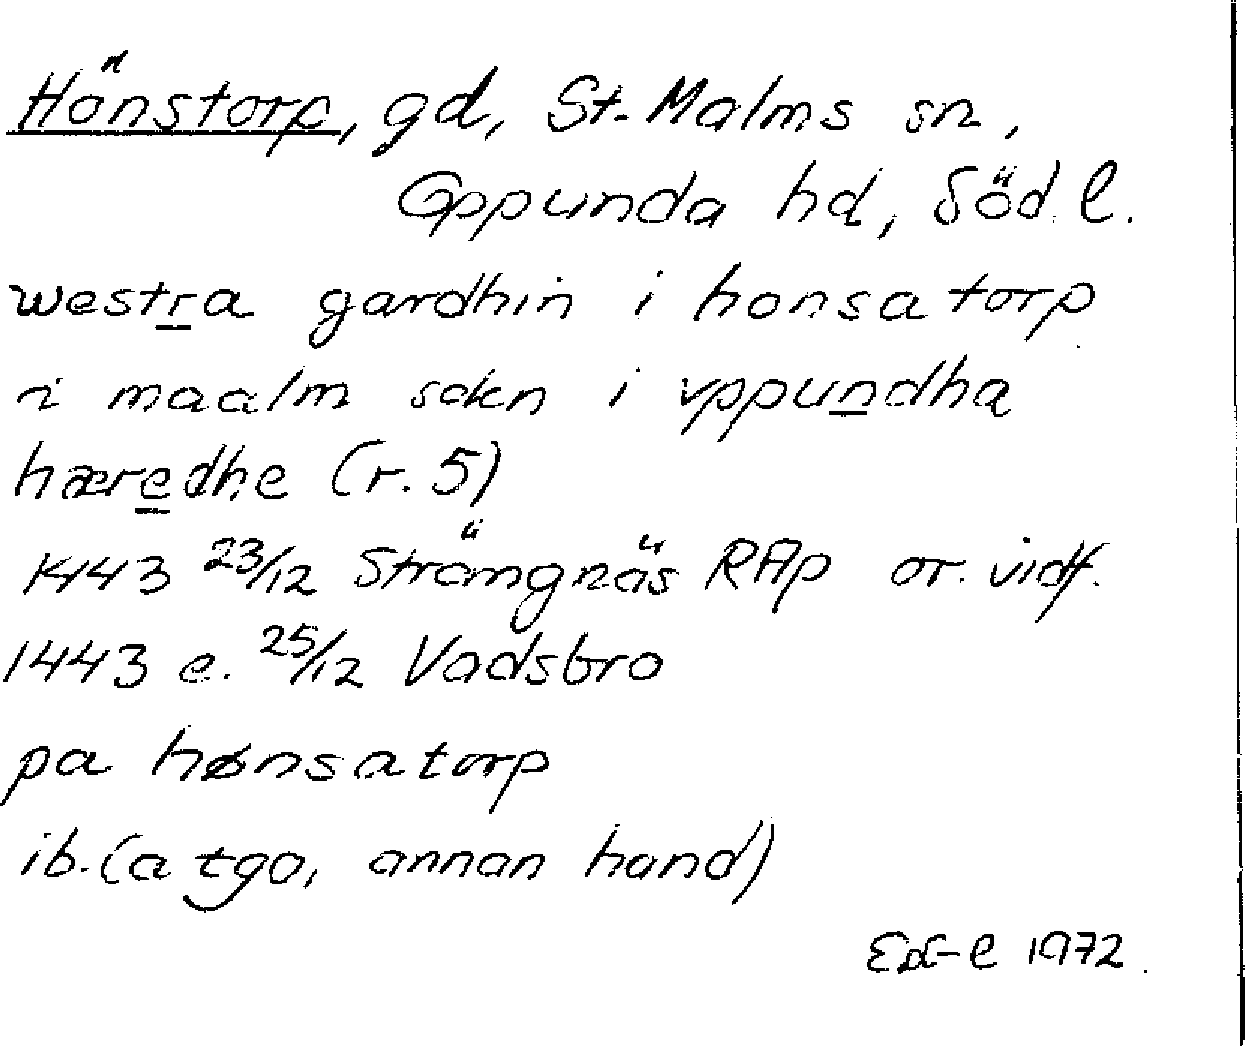 Hönstorp, gd, St. Malms sn,
Oppunda hd, Söd. l.
westra gardhin i honsatorp
i maalm sokn i vppundha
hæredhe (r. 5)
1443 23/12 Strängnäs RAp or. vidf.
1443 e. 25/12 Vadsbro
pa hønsatorp
ib. (a tgo, annan hand)
1972.